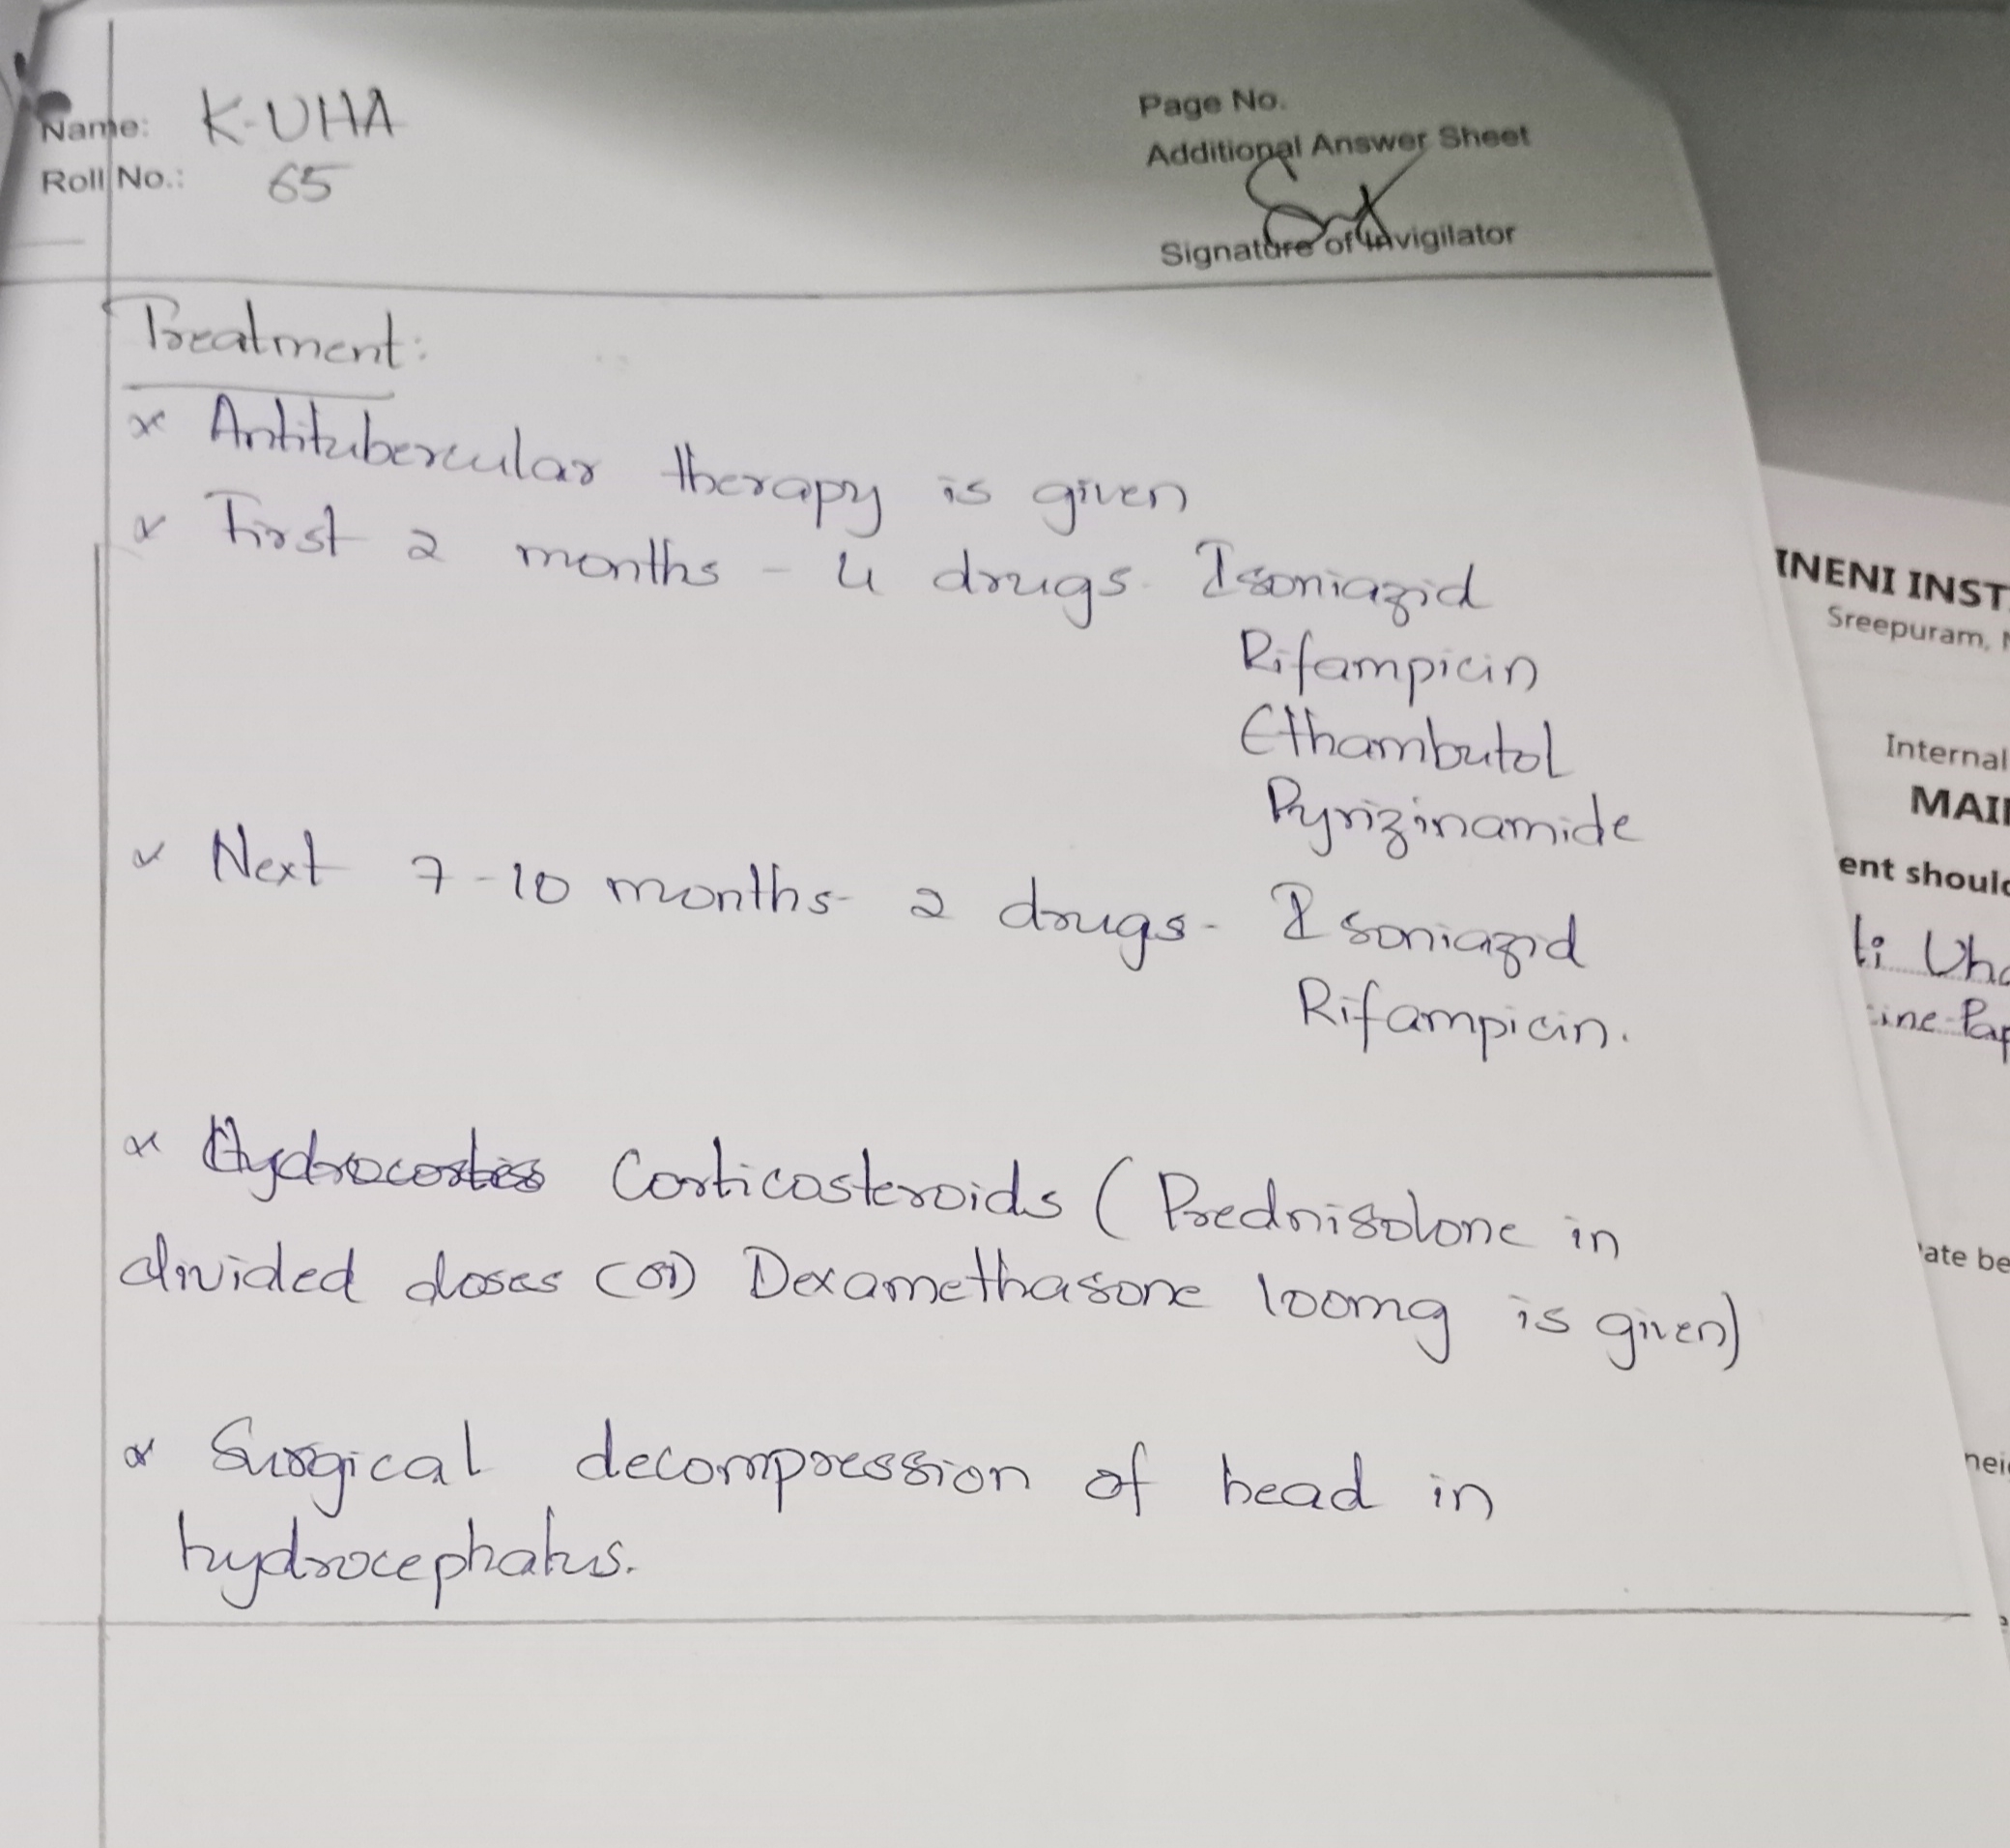 Name: K-UHA
Roll No.: 65
Page No.
Additional Answer Sheet
Signature of Invigilator
Treatment:
x Antitubercular therapy is given
x First 2 months - 4 drugs- Isoniazid
Rifampicin
Ethambutol
Pyrizinamide
x Next 7-10 months- 2 drugs- Isoniazid
Rifampicin.
x Hydrocortis Corticosteroids (Prednisolone in
divided doses (or) Dexamethasone 100mg is given)
x Surgical decompression of head in
hydrocephalus.
INENI INST
Sreepuram,
Internal
MAI
ent should
ti Uha
ine-Pap
ate be
nei